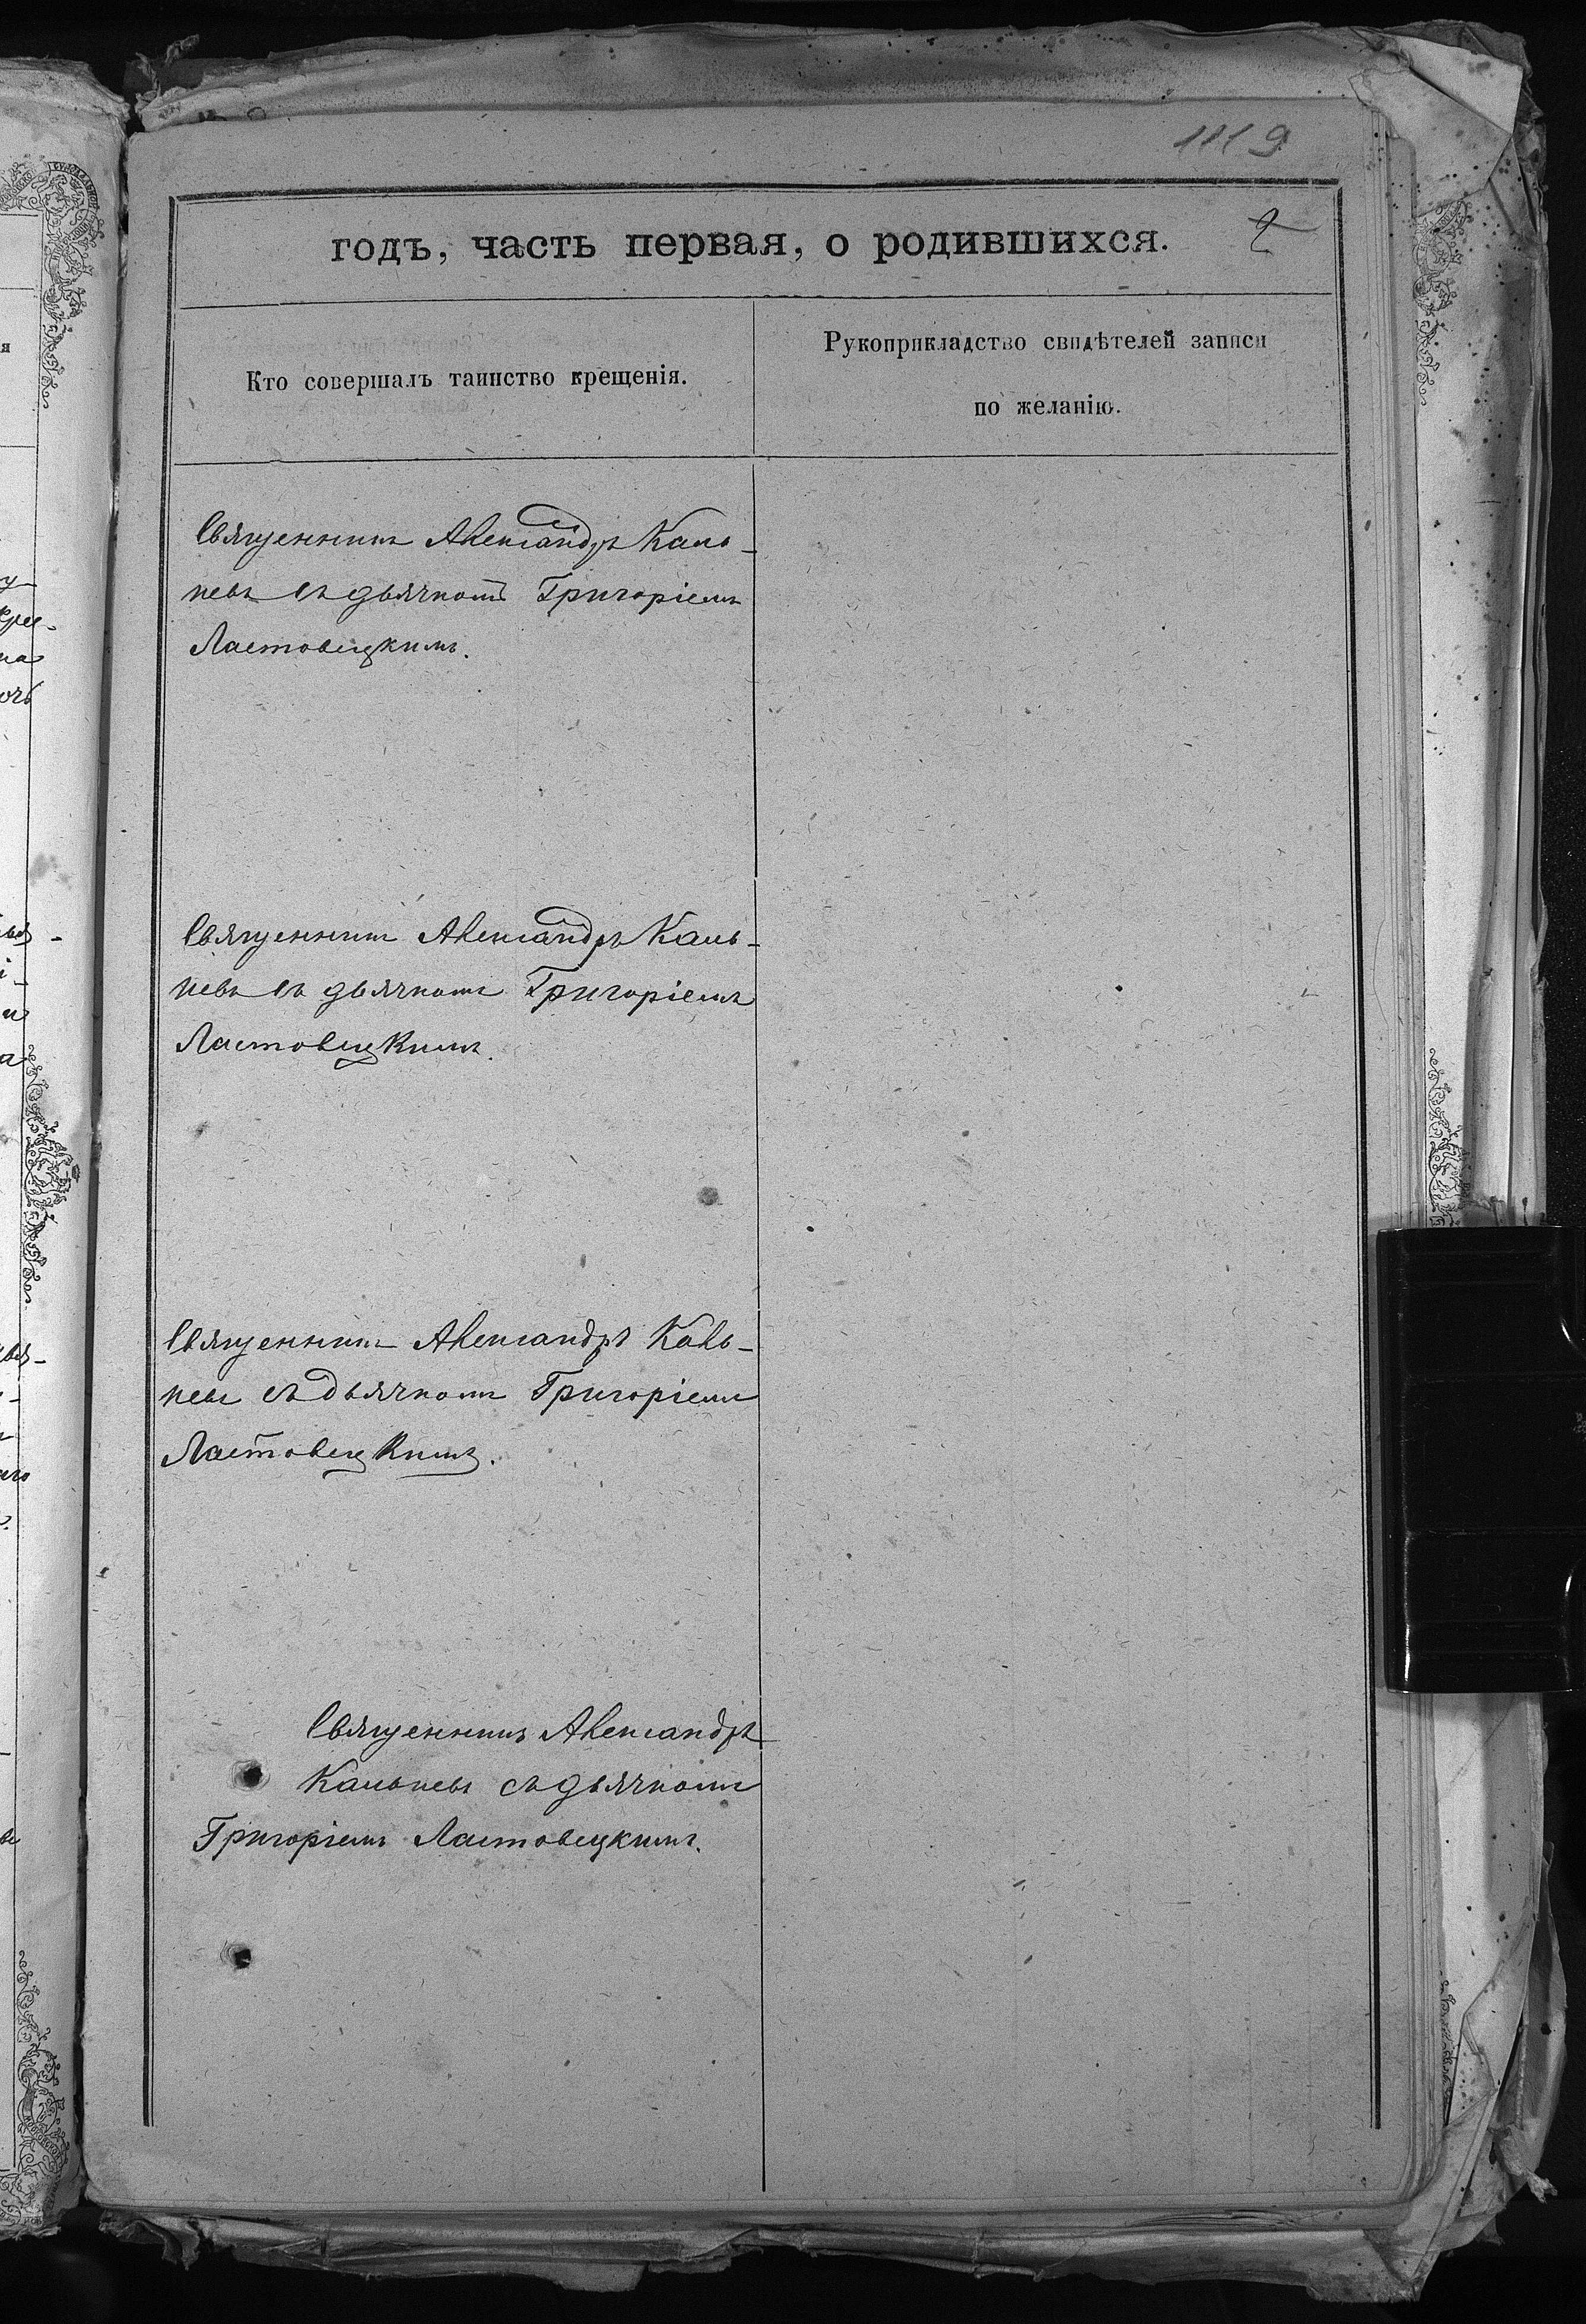 1119
годъ, часть первая, о родившихся. 2
Кто совершалъ таинство крещенія.
Рукоприкладство свидѣтелей записи
по желанію.
Священникъ Александръ Каль-
невъ съ дьячкомъ Григоріемъ
Ластовецкимъ.
Священникъ Александръ Каль-
невъ съ дьячкомъ Григоріемъ
Ластовецкимъ.
Священникъ Александръ Каль-
невъ съ дьячкомъ Григоріемъ
Ластовецкимъ.
Священникъ Александръ
Кальневъ съ дьячкомъ
Григоріемъ Ластовецкимъ.